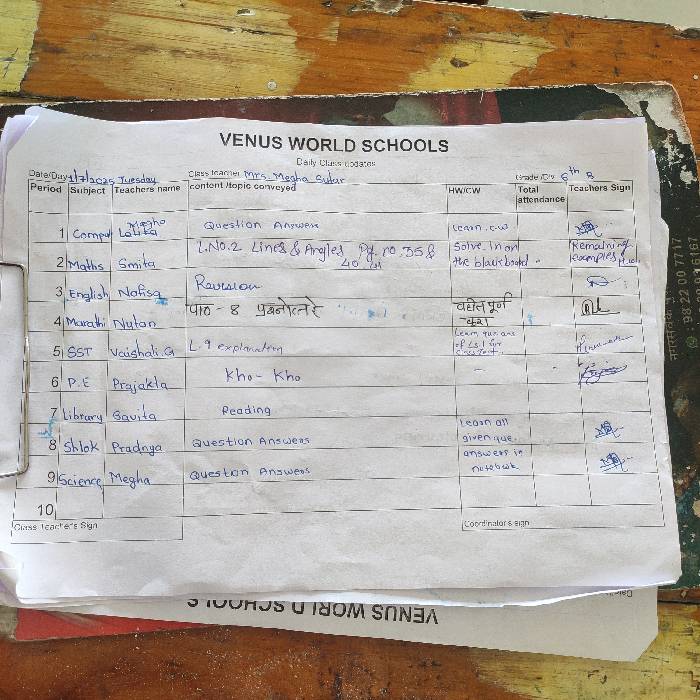 VENUS WORLD SCHOOLS
Daily Class updates
Date/Day 1/7/2025 Tuesday Class teacher Mrs. Megha Sutar Grade /Div 6th B
Period Subject Teachers name content /topic conveyed HW/CW Total attendance Teachers Sign
1 Comput Megha Question Answers Learn c.w
2 Maths Smita L.No.2 Lines & Angles Pg. no. 35 & 40 Solve in on the blackboard - Remaining examples H.w
3 English Nafisa Revision
4 Marathi Nutan पाठ - 8 प्रश्नोत्तरे वहीत पूर्ण करा
5 SST Vaishali.G L.9 explanation Learn que ans of Ls.1 for class test.
6 P.E Prajakta Kho - Kho - -
7 Library Savita Reading
8 Shlok Pradnya Question Answers Learn all given que.
9 Science Megha Question Answers answers in notebook
10
Class Teacher's Sign Coordinator's sign
VENUS WORLD SCHOOLS
98 22 00 7717